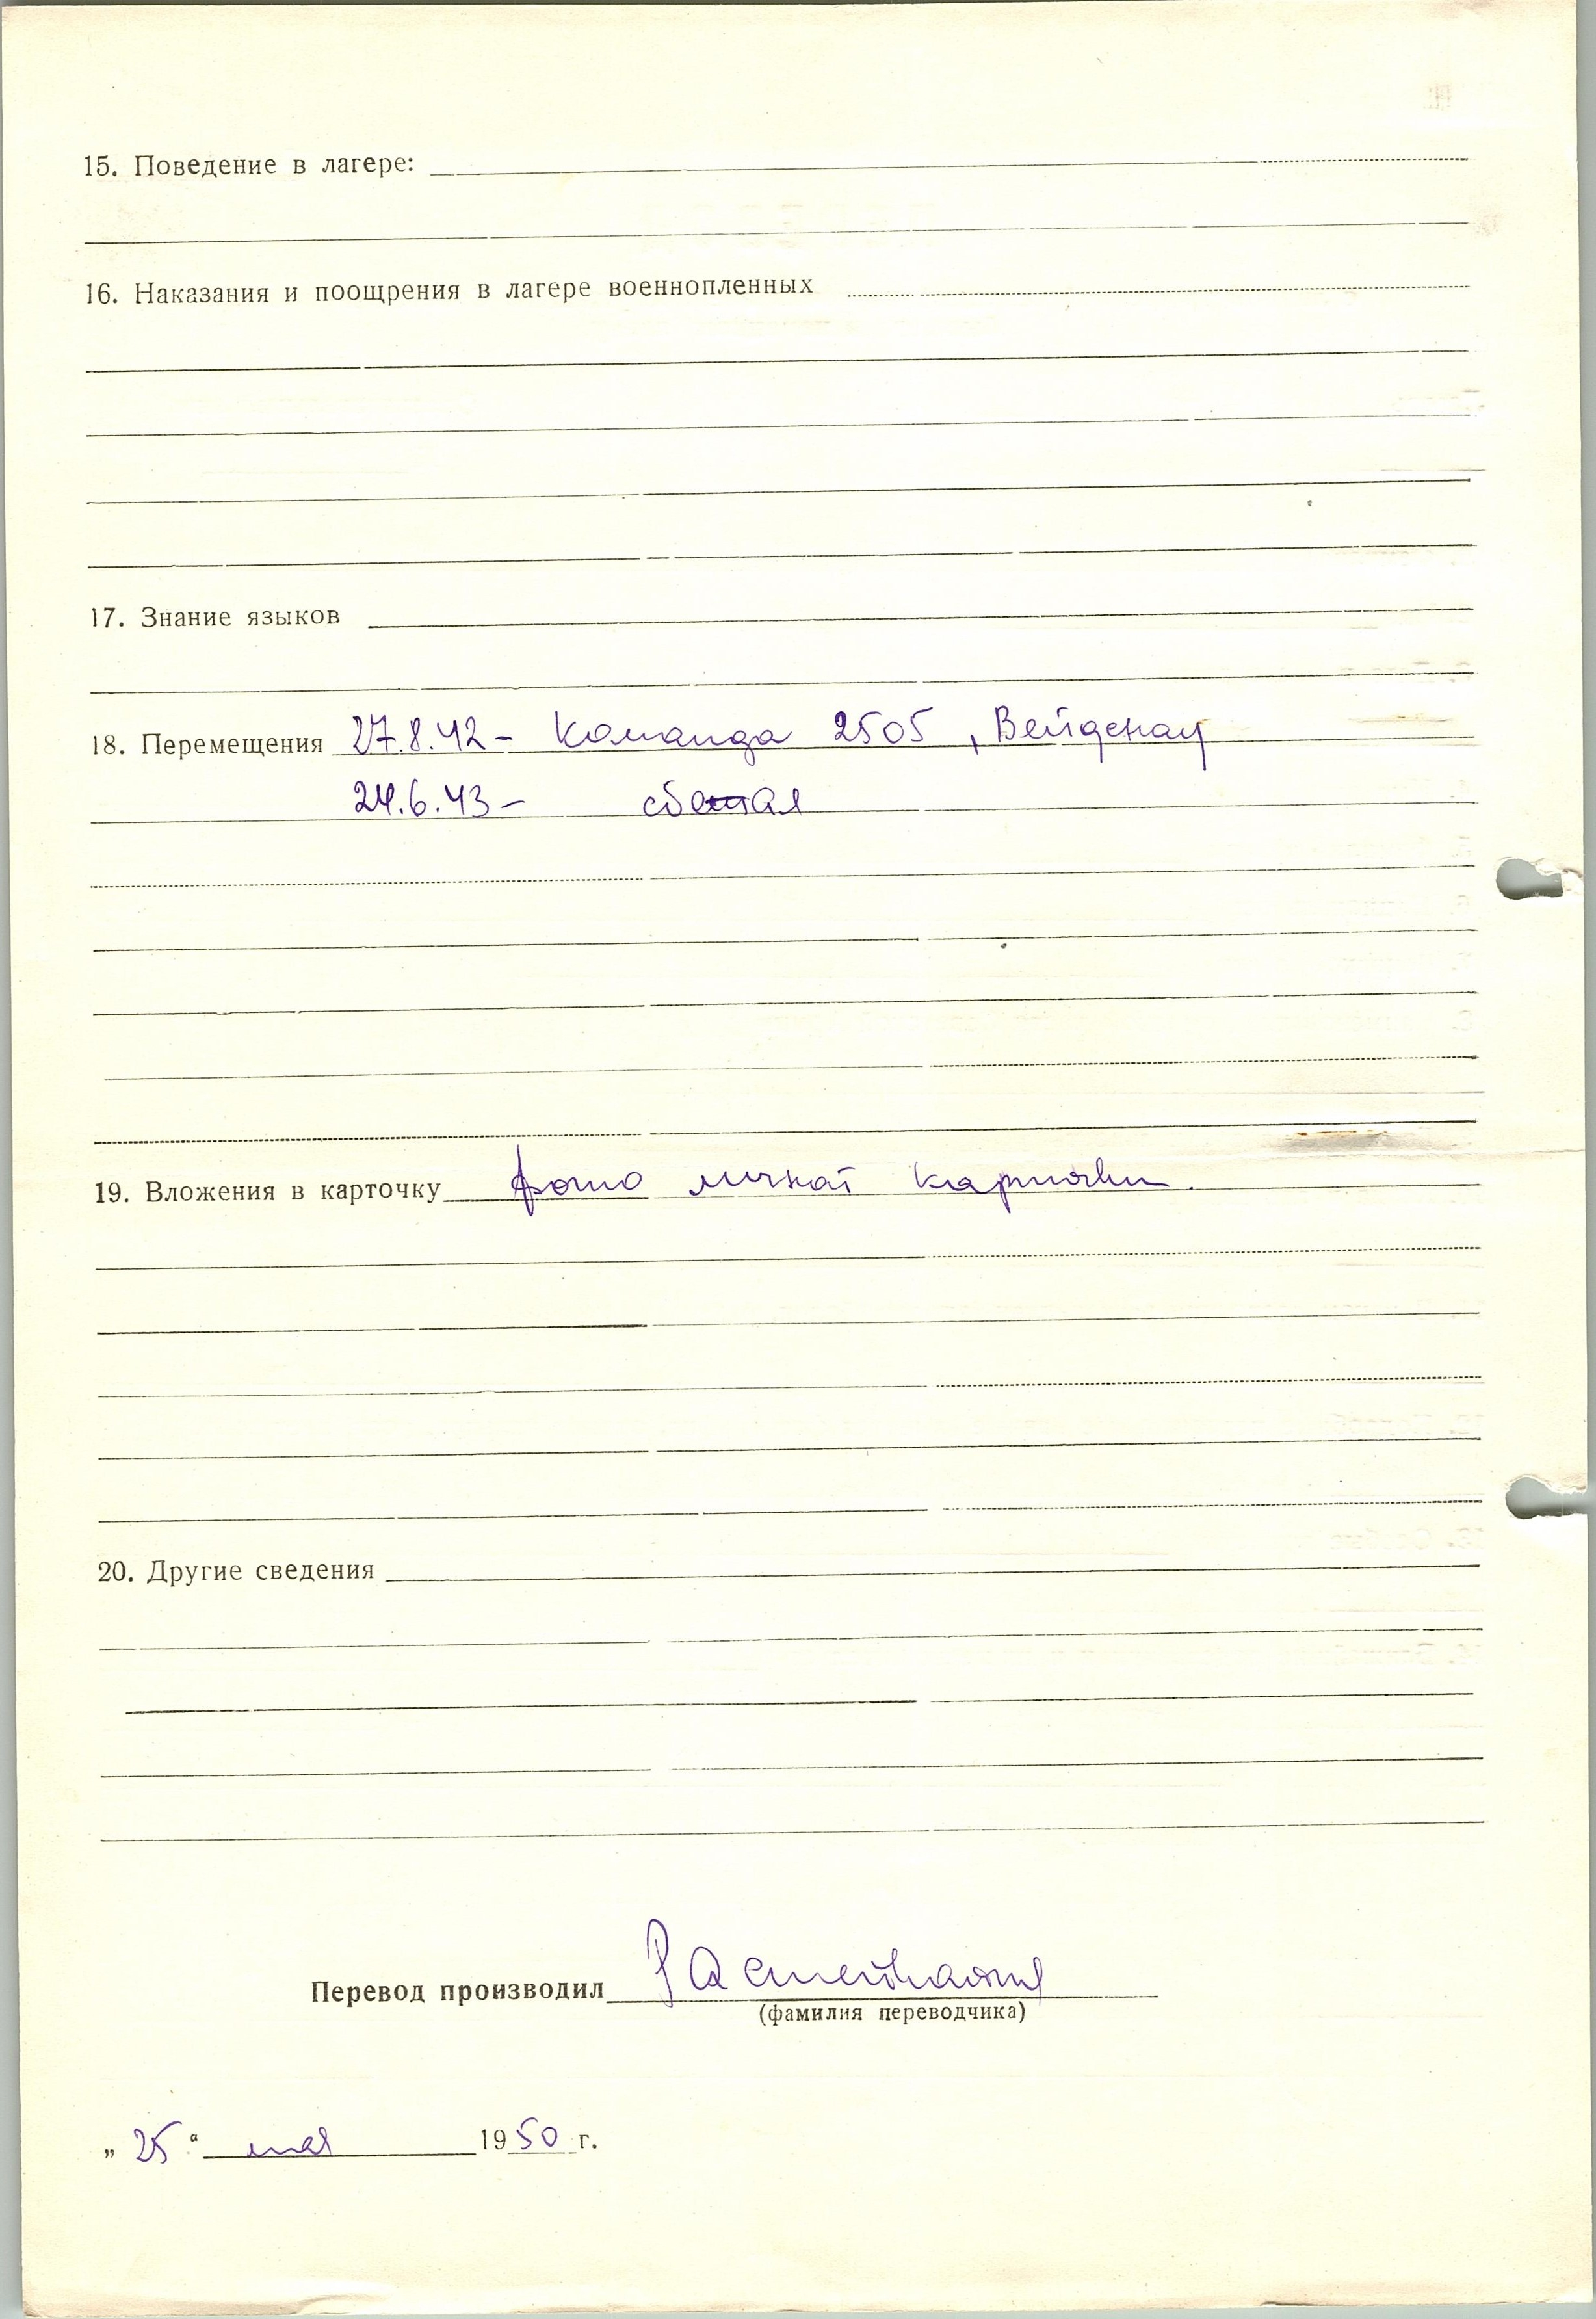 15. Поведение в лагере:
16. Наказания и поощрения в лагере военнопленных
17. Знание языков
18. Перемещения 27.8.42 - Команда 2505, Вейденау
24.6.43 - сбежал
19. Вложения в карточку фото личной карточки.
20. Другие сведения
Перевод производил
(фамилия переводчика)
„25“ мая 1950 г.